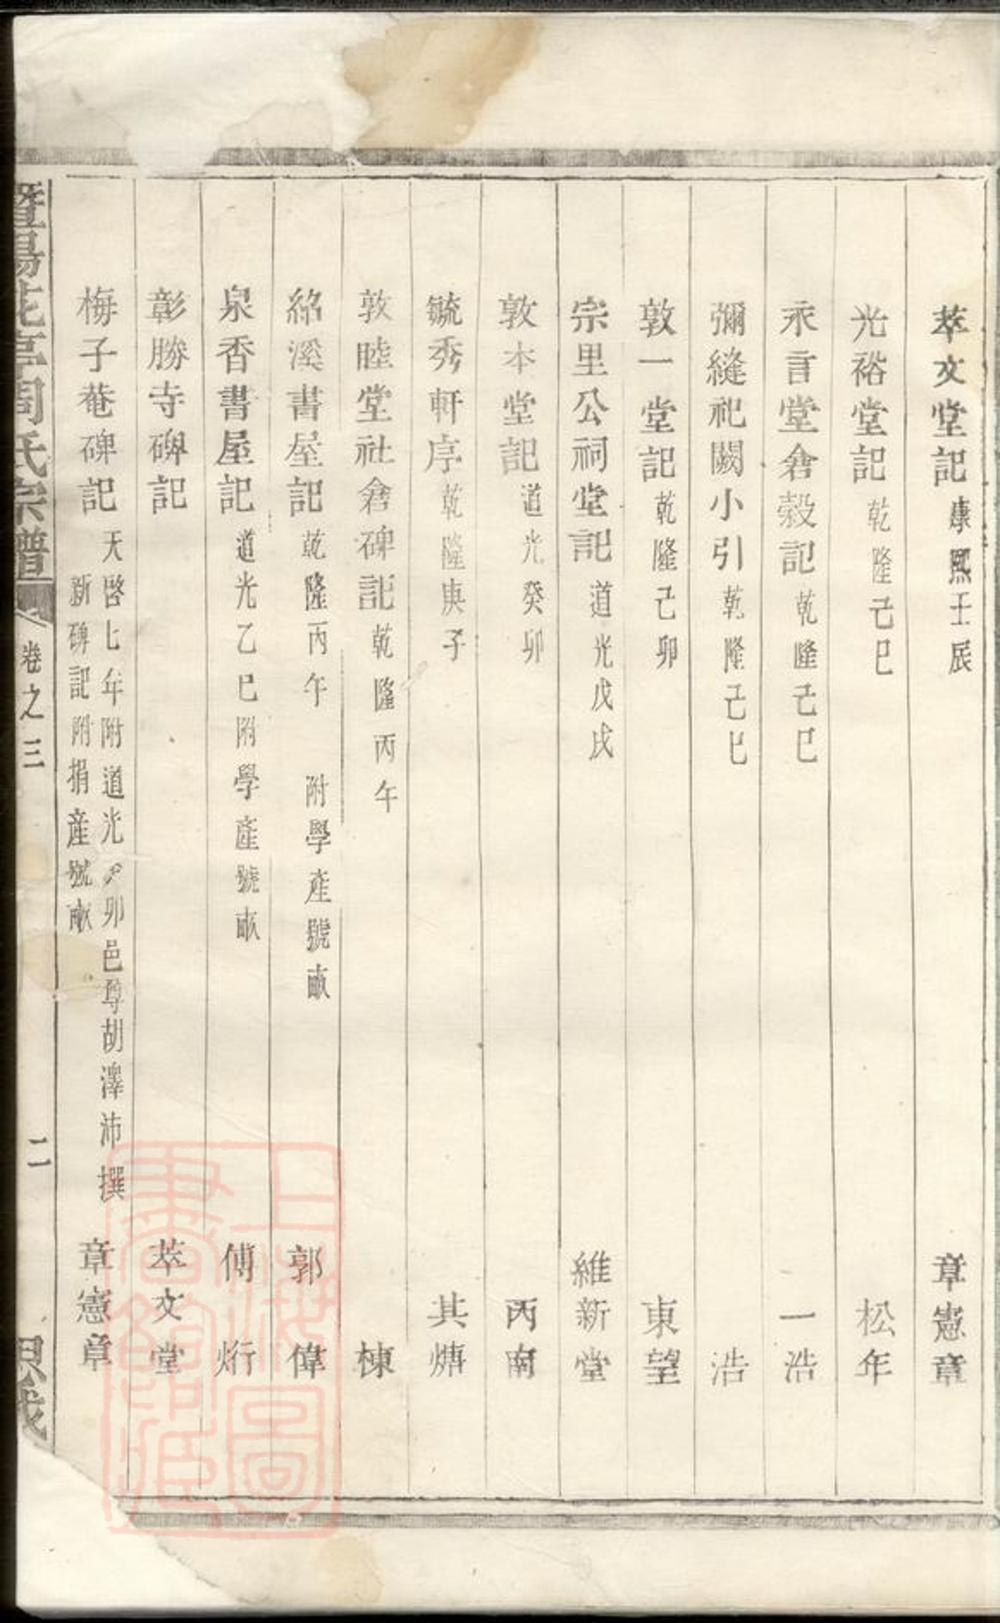 萃文堂記 康熙壬辰 章憲章
光裕堂記 乾隆己巳 松年
永言堂倉穀記 乾隆己巳 一浩
彌縫祀闕小引 乾隆己巳 浩
敦一堂記 乾隆己卯 東望
宗里公祠堂記 道光戊戌 維新堂
敦本堂記 道光癸卯 丙南
毓秀軒序 乾隆庚子 其燽
敦睦堂社倉碑記 乾隆丙午 棟
紹溪書屋記 乾隆丙午 附學產號畝 郭偉
泉香書屋記 道光乙巳附學產號畝 傅烆
彰勝寺碑記 萃文堂
梅子菴碑記 天啓七年附道光 卯邑尊胡澤沛撰
新碑記附捐產號畝 章憲章
暨陽花亭周氏宗譜 卷之三 二
上海圖書館藏